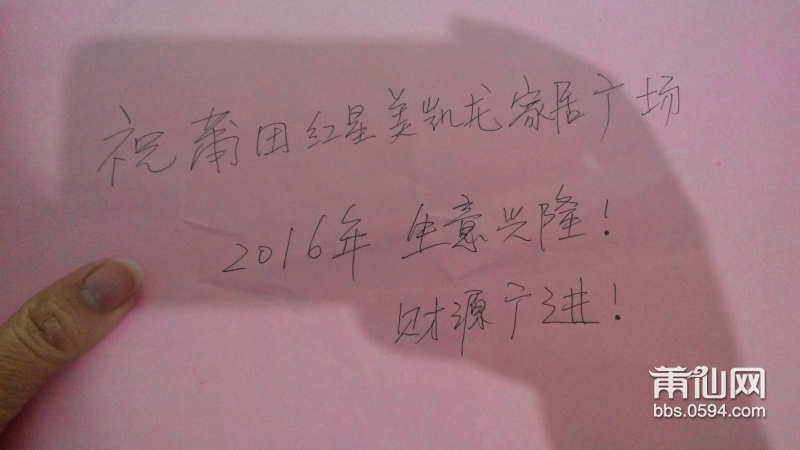 祝莆田红星美凯龙家居广场
2016年 生意兴隆！
财源广进！
莆仙网
bbs.0594.com